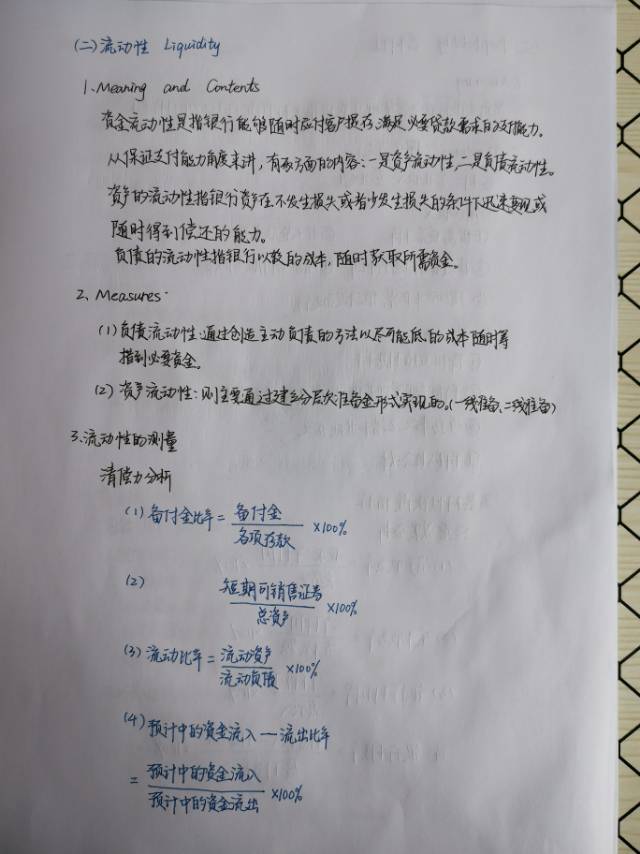 (二)流动性 Liquidity
1. Meaning and Contents
资金流动性是指银行能够随时应付客户提存,满足必要贷款需求的支付能力。
从保证支付能力角度来讲,有两方面的内容:一是资产流动性,二是负债流动性。
资产的流动性指银行资产在不发生损失或者少发生损失的条件下迅速变现或
随时得到偿还的能力。
负债的流动性指银行以较的成本,随时获取所需资金。
2. Measures:
(1)负债流动性:通过创造主动负债的方法以尽可能低的成本随时筹
措到必要资金。
(2)资产流动性:则主要通过建立分层次准备金形式实现的。(一线准备、二线准备)
3.流动性的测量
清偿力分析
(1)备付金比率= 备付金 / 各项存款 ×100%
(2) 短期可销售证券 / 总资产 ×100%
(3)流动比率= 流动资产 / 流动负债 ×100%
(4)预计中的资金流入—流出比率
= 预计中的资金流入 / 预计中的资金流出 ×100%